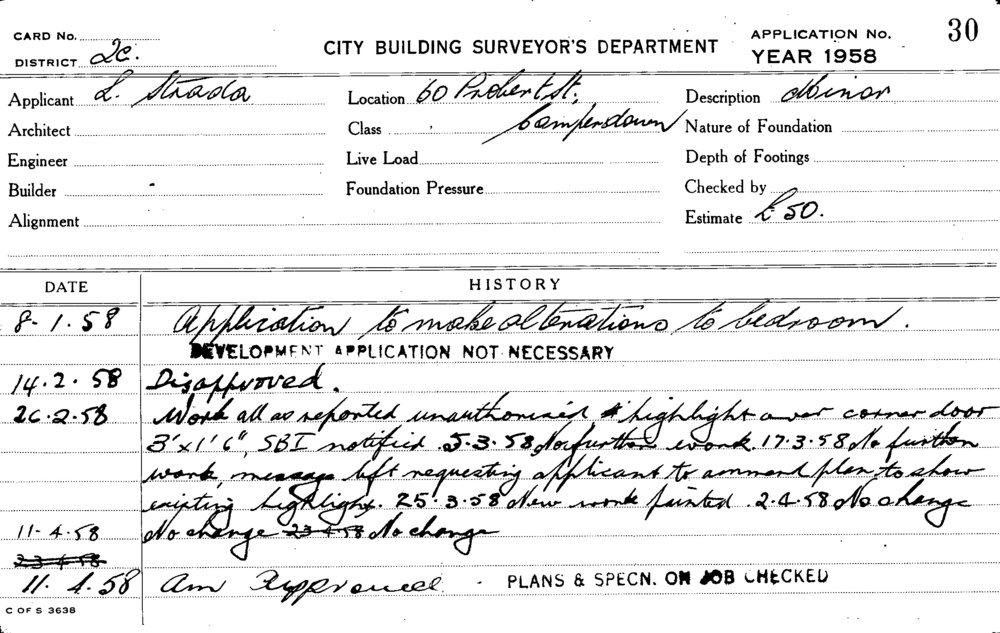 CARD No.
DISTRICT 2c.
CITY BUILDING SURVEYOR'S DEPARTMENT
APPLICATION No. 30
YEAR 1958
Applicant L. Strada
Location 60 Probert St,
Description Minor
Architect
Class Camperdown
Nature of Foundation
Engineer
Live Load
Depth of Footings
Builder
Foundation Pressure
Checked by
Alignment
Estimate £50.
DATE HISTORY
8-1.58 Application to make alterations to bedroom.
DEVELOPMENT APPLICATION NOT NECESSARY
14.2.58 Disapproved.
26.2.58 Work all as reported unauthorised & highlight over corner door
3'x1'6", SBI notified. 5.3.58 No further work. 17.3.58 No further
work, message left requesting applicant to ammend plan to show
existing highlight. 25.3.58 New work painted. 2.4.58 No change
11.4.58 No change 23.4.58 No change
23.4.58
11.4.58 Am Approved. PLANS & SPECN. ON JOB CHECKED
C OF S 3638